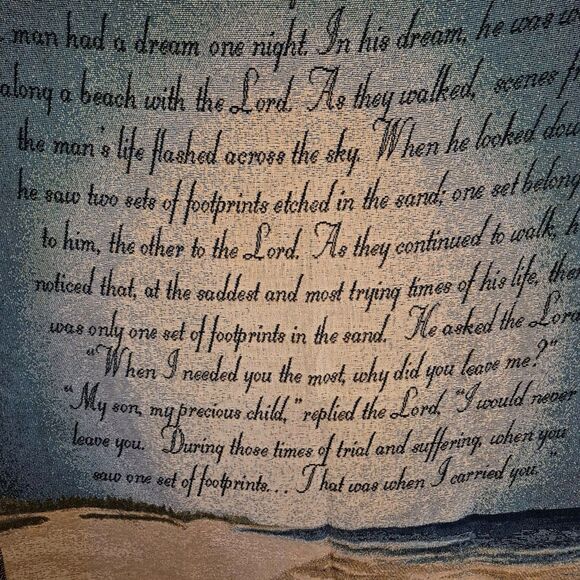 man had a dream one night. In his dream, he was
along a beach with the Lord. As they walked, scenes
the man's life flashed across the sky. When he looked
he saw two sets of footprints etched in the sand; one set
to him, the other to the Lord. As they continued to walk,
noticed that, at the saddest and most trying times of his life,
was only one set of footprints in the sand. He asked the Lord
"When I needed you the most, why did you leave me?"
"My son, my precious child," replied the Lord, "I would never
leave you. During those times of trial and suffering, when you
saw one set of footprints... That was when I carried you."